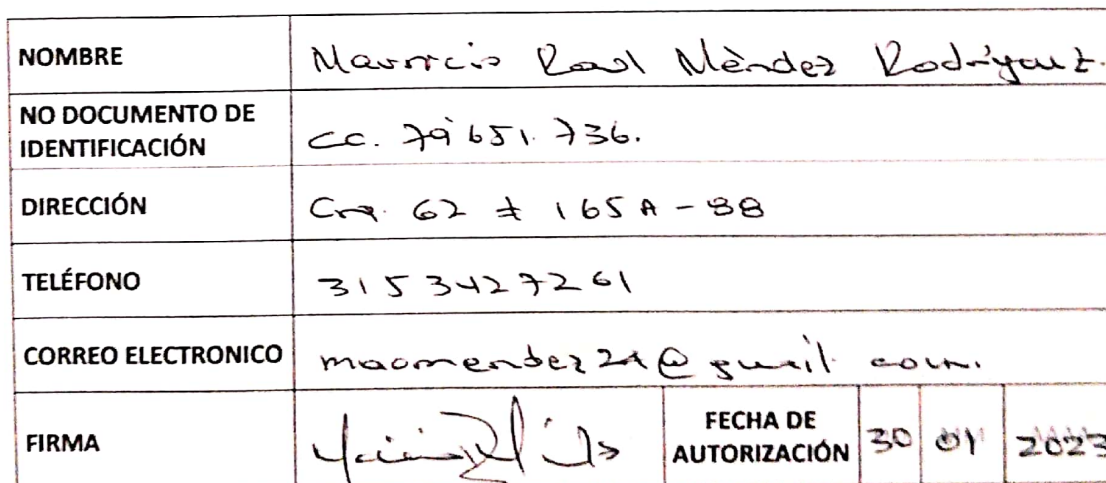 NOMBRE Mauricio Raul Méndez Rodríguez.
NO DOCUMENTO DE
IDENTIFICACIÓN CC. 79'651.736.
DIRECCIÓN Cra. 62 # 165A-88
TELÉFONO 3153427261
CORREO ELECTRONICO @gmail.com.
FIRMA
FECHA DE
AUTORIZACIÓN 30 01 2023